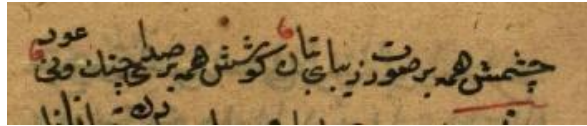 چشمش همه بر صورت زیبای بتان کوشش همه بر صدای چنك ونی عود